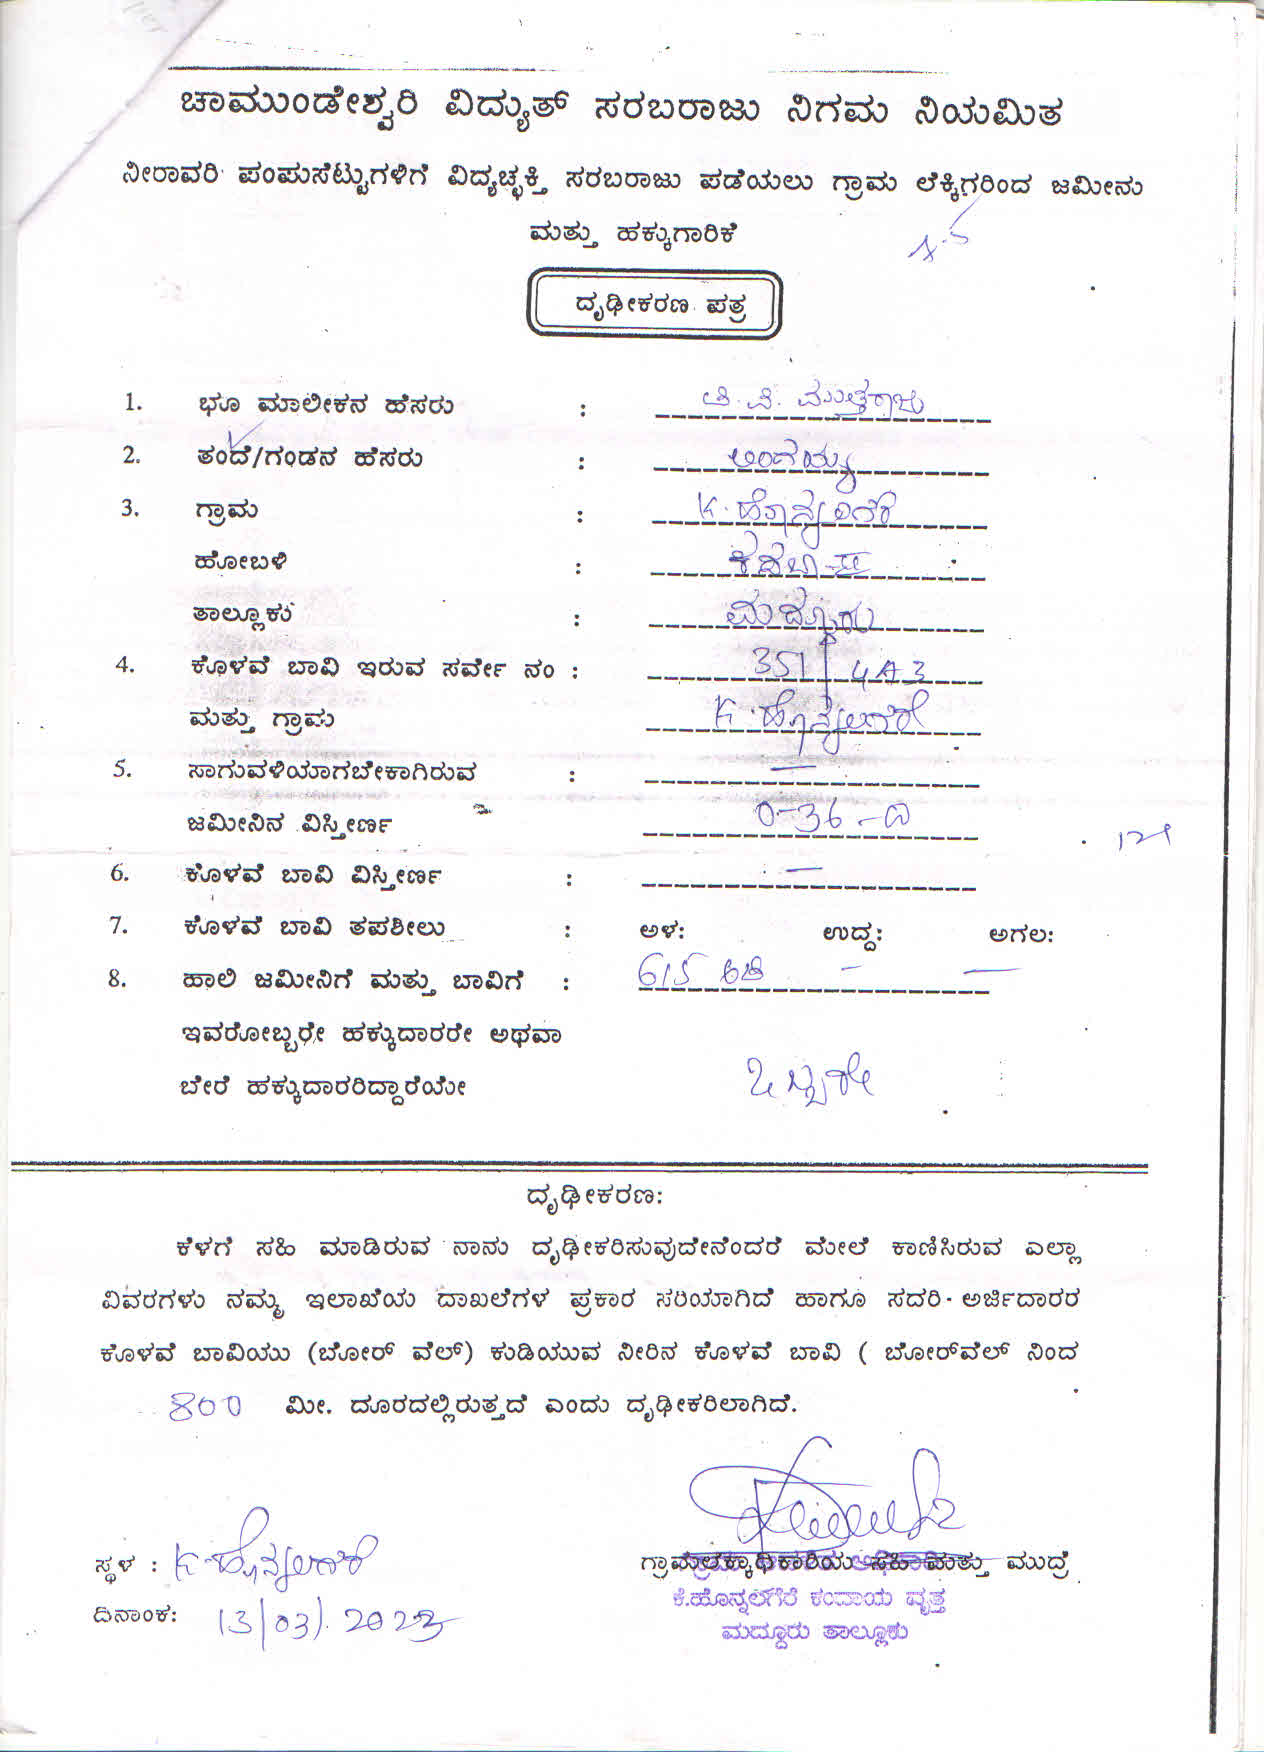 ಚಾಮುಂಡೇಶ್ವರಿ ವಿದ್ಯುತ್ ಸರಬರಾಜು ನಿಗಮ ನಿಯಮಿತ
ನೀರಾವರಿ ಪಂಪುಸೆಟ್ಟುಗಳಿಗೆ ವಿದ್ಯಚ್ಛಕ್ತಿ ಸರಬರಾಜು ಪಡೆಯಲು ಗ್ರಾಮ ಲೆಕ್ಕಿಗರಿಂದ ಜಮೀನು
ಮತ್ತು ಹಕ್ಕುಗಾರಿಕೆ
ದೃಢೀಕರಣ ಪತ್ರ
1. ಭೂ ಮಾಲೀಕನ ಹೆಸರು : ಮುತ್ತರಾಜು
2. ತಂದೆ/ಗಂಡನ ಹೆಸರು :
3. ಗ್ರಾಮ : K. ಹೊನ್ನಲಗೆರೆ
ಹೋಬಳಿ :
ತಾಲ್ಲೂಕು : ಮದ್ದೂರು
4. ಕೊಳವೆ ಬಾವಿ ಇರುವ ಸರ್ವೇ ನಂ : 351/4A3
ಮತ್ತು ಗ್ರಾಮ K. ಹೊನ್ನಲಗೆರೆ
5. ಸಾಗುವಳಿಯಾಗಬೇಕಾಗಿರುವ : —
ಜಮೀನಿನ ವಿಸ್ತೀರ್ಣ 0-36-0
6. ಕೊಳವೆ ಬಾವಿ ವಿಸ್ತೀರ್ಣ : —
7. ಕೊಳವೆ ಬಾವಿ ತಪಶೀಲು : ಅಳ: ಉದ್ದ: ಅಗಲ:
8. ಹಾಲಿ ಜಮೀನಿಗೆ ಮತ್ತು ಬಾವಿಗೆ : 615 ಅಡಿ – —
ಇವರೋಬ್ಬರೇ ಹಕ್ಕುದಾರರೇ ಅಥವಾ
ಬೇರೆ ಹಕ್ಕುದಾರರಿದ್ದಾರೆಯೇ ಒಬ್ಬರೇ
ದೃಢೀಕರಣ:
ಕೆಳಗೆ ಸಹಿ ಮಾಡಿರುವ ನಾನು ದೃಢೀಕರಿಸುವುದೇನೆಂದರೆ ಮೇಲೆ ಕಾಣಿಸಿರುವ ಎಲ್ಲಾ
ವಿವರಗಳು ನಮ್ಮ ಇಲಾಖೆಯ ದಾಖಲೆಗಳ ಪ್ರಕಾರ ಸರಿಯಾಗಿದೆ ಹಾಗೂ ಸದರಿ ಅರ್ಜಿದಾರರ
ಕೊಳವೆ ಬಾವಿಯು (ಬೋರ್ ವೆಲ್) ಕುಡಿಯುವ ನೀರಿನ ಕೊಳವೆ ಬಾವಿ ( ಬೋರ್‌ವೆಲ್ ನಿಂದ
800 ಮೀ. ದೂರದಲ್ಲಿರುತ್ತದೆ ಎಂದು ದೃಢೀಕರಿಲಾಗಿದೆ.
ಸ್ಥಳ : K. ಹೊನ್ನಲಗೆರೆ
ಗ್ರಾಮಲೆಕ್ಕಾಧಿಕಾರಿಯ ಸಹಿ ಮತ್ತು ಮುದ್ರೆ
ಕೆ.ಹೊನ್ನಲಗೆರೆ ಕಂದಾಯ ವೃತ್ತ
ದಿನಾಂಕ: 13/03/2023
ಮದ್ದೂರು ತಾಲ್ಲೂಕು